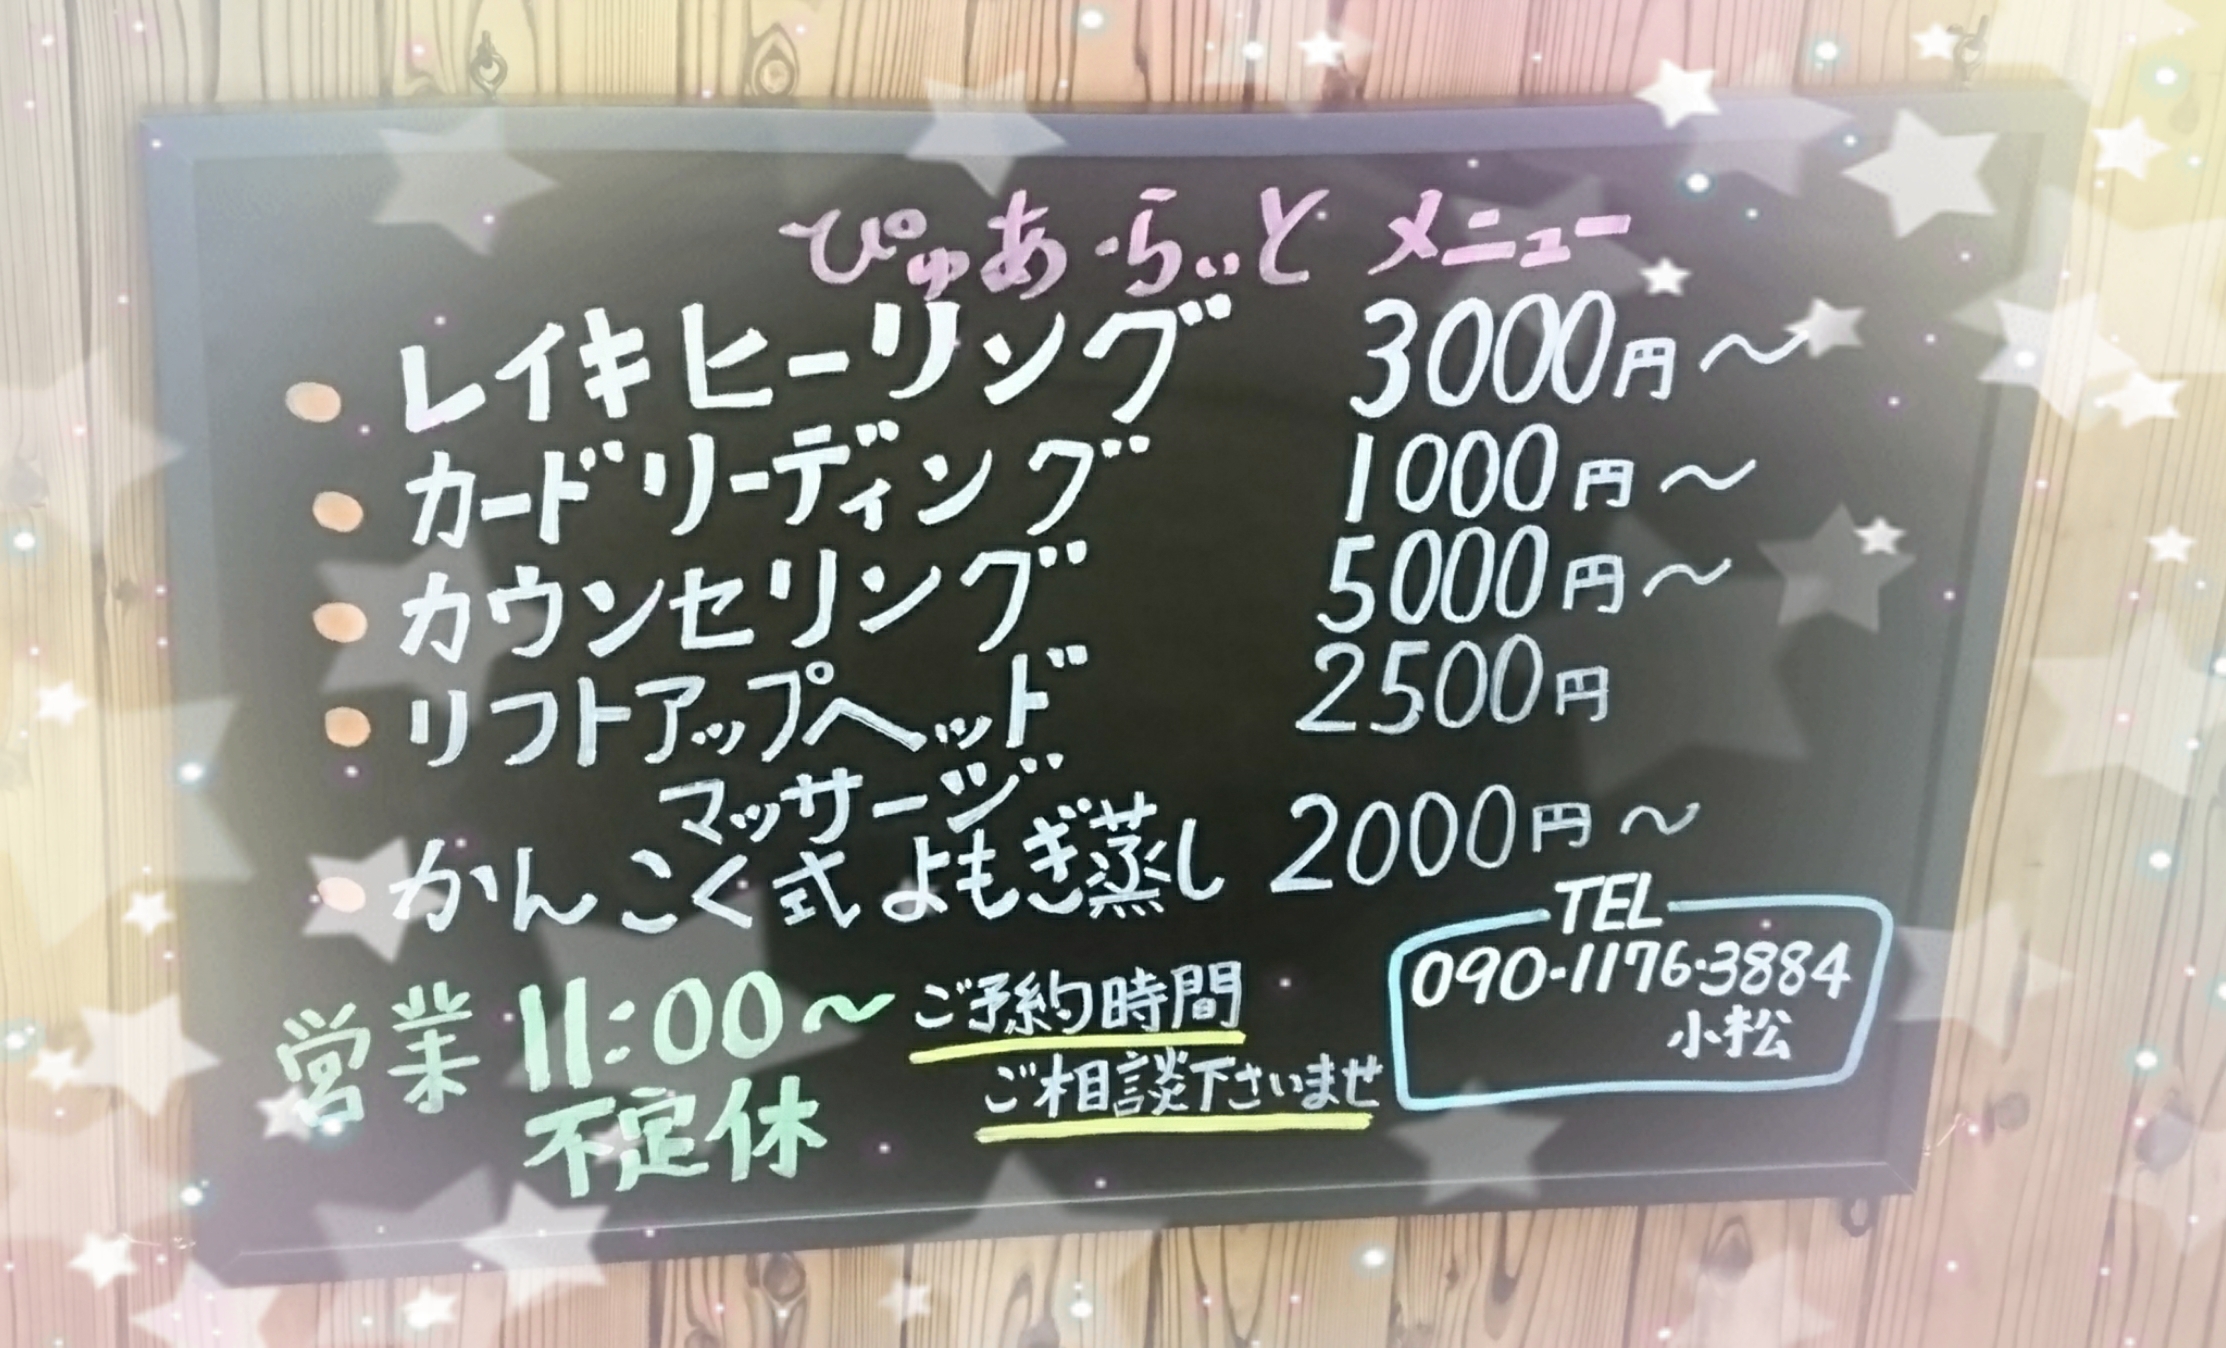 ぴゅあ・らぃと メニュー
レイキヒーリング 3000円～
カードリーディング 1000円～
カウンセリング 5000円～
リフトアップヘッド 2500円
マッサージ
かんこく式よもぎ蒸し 2000円～
TEL
090-1176-3884
小松
営業 11:00～ ご予約時間
ご相談下さいませ
不定休